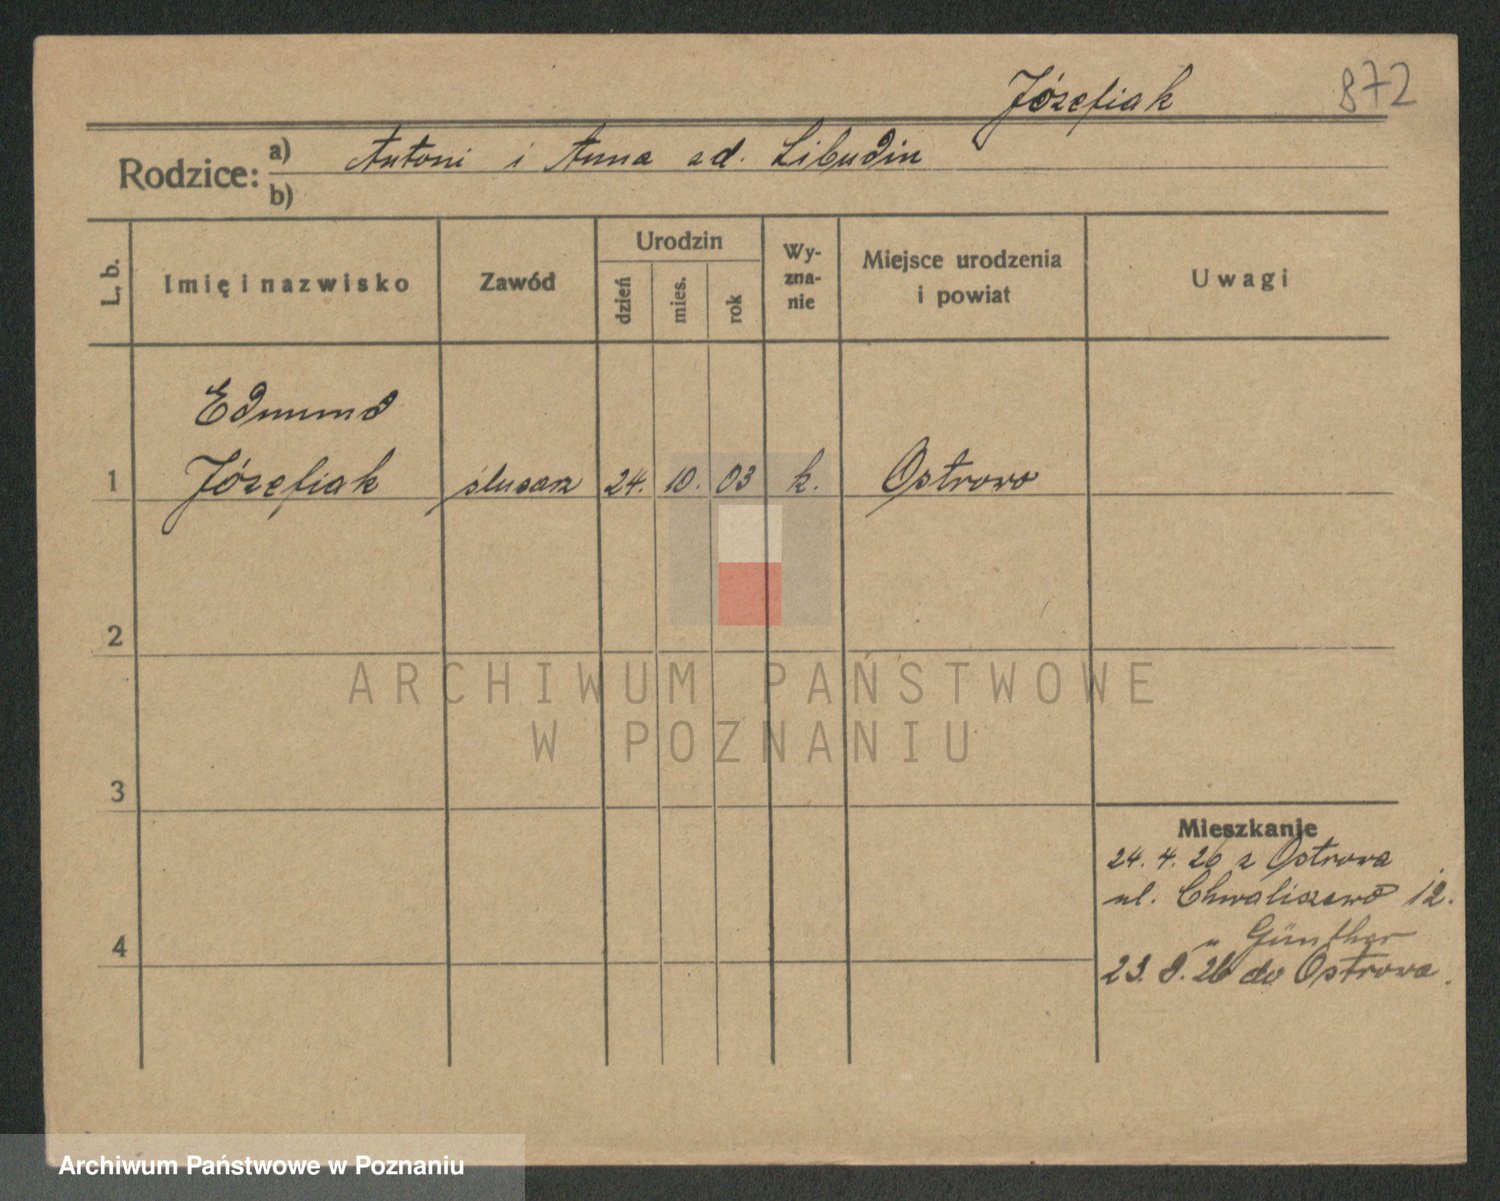 Józefiak 872
Rodzice: a) Antoni i Anna zd. Libudin
b)
L. b. Imię i nazwisko Zawód Urodzin dzień mies. rok Wy-zna-nie Miejsce urodzenia i powiat Uwagi
Edmund
1 Józefiak ślusarz 24. 10. 03 k. Ostrowo
2
ARCHIWUM PAŃSTWOWE
W POZNANIU
3
Mieszkanie
24. 4. 26 z Ostrowa
ul. Chwaliszewo 12.
" Günther
4
23. 8. 26 do Ostrowa.
Archiwum Państwowe w Poznaniu